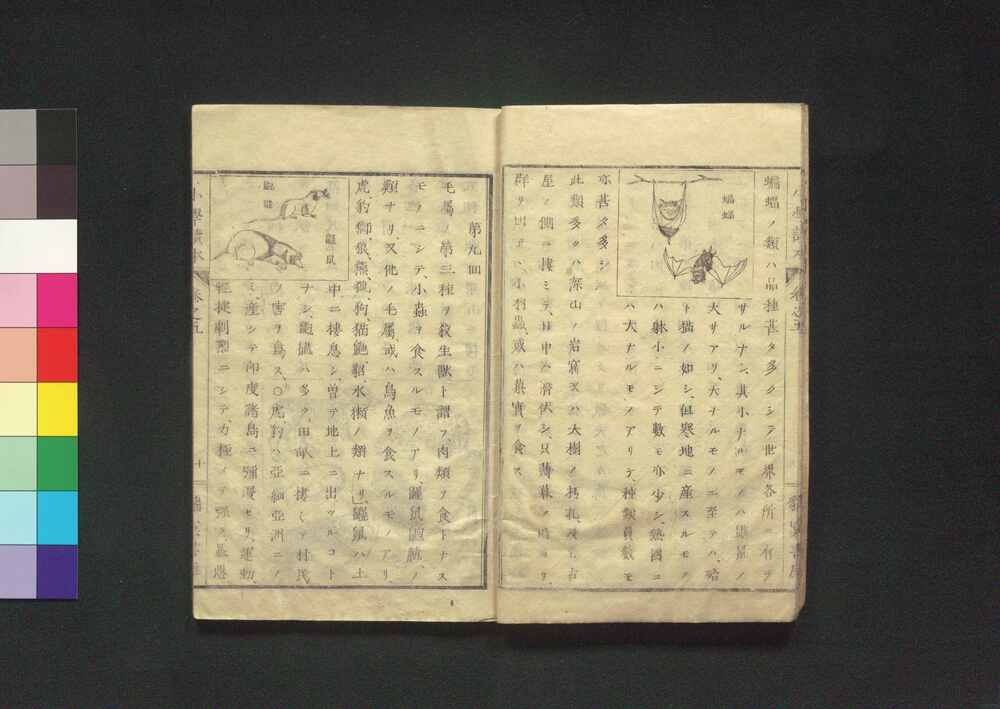 蝙蝠ノ類ハ品種甚タ多クシテ世界各所ニ有ラ
サルナシ、其小ナルモノハ鼴鼠ノ
大サアリ、大ナルモノニ至テハ、略
ト猫ノ如シ、但寒地ニ産スルモノ
ハ躰小ニシテ數モ亦少シ、熱國ニ
ハ大ナルモノアリテ、種類員數モ
亦甚タ多シ
此類多クハ深山ノ岩窟又ハ大樹ノ朽孔、及ヒ古
屋ノ側ニ棲ミテ、日中ハ潜伏シ、只薄暮ノ時ヨリ、
群リ出テヽ、小羽蟲、或ハ菓實ヲ食ス
蝙蝠
第九回
毛屬ノ第三種ヲ殺生獸ト謂フ、肉類ヲ食トナス
モノニシテ、小蟲ヲ食スルモノアリ、鼴鼠
類ナリ、又他ノ毛屬、或ハ鳥魚ヲ食スルモノアリ、
虎、豹、獅、狼、熊、狐、狗、猫、貂、水獺ノ類ナリ、鼴鼠ハ土
中ニ棲息シ、曽テ地上ニ出ツルコト
ナシ、多ク田
害ヲ爲ス、○虎豹ハ亞細亞洲ニノ
ミ産シテ印度諸島ニ彌漫セリ、運動
輕捷剽
鼴鼠
小學讀本
卷之五
十